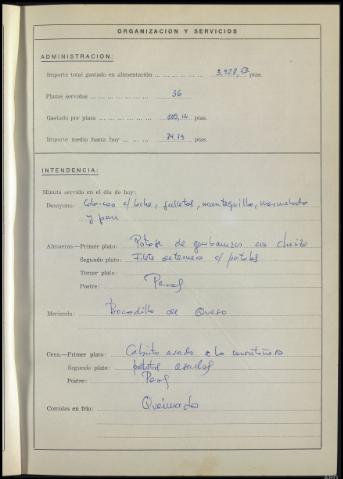 ORGANIZACION Y SERVICIOS
ADMINISTRACION:
Importe total gastado en alimentación ... ... ... ... ... ptas.
Plazas servidas ... ... ... ... ... ... 36
Gastado por plaza ... ... ... ... ... ptas.
Importe medio hasta hoy ... ... ... ... ptas.
INTENDENCIA:
Minuta servida en el día de hoy:
Desayuno: c/ leche, galletas, mantequilla, mermelada
y pan
Almuerzo.—Primer plato: Potaje de garbanzos con chorizo
Segundo plato: Filete c/ patatas
Tercer plato:
Postre: Peras
Merienda: Bocadillo de Queso
Cena.—Primer plato: Cabrito asado a la montañera
Segundo plato: patatas asadas
Postre: Peras
Comidas en frío: Queimada